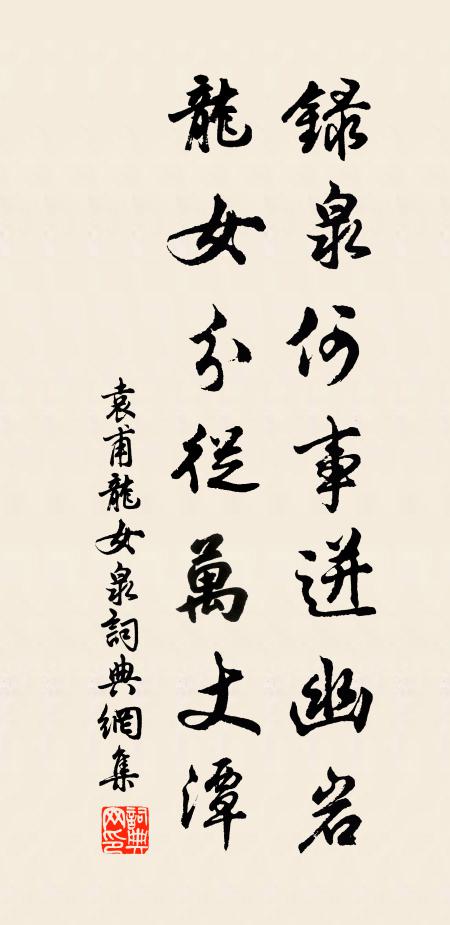 錄泉何事迸幽岩
龍女分從萬丈潭
袁甫龍女泉詞典網集
詞典网印